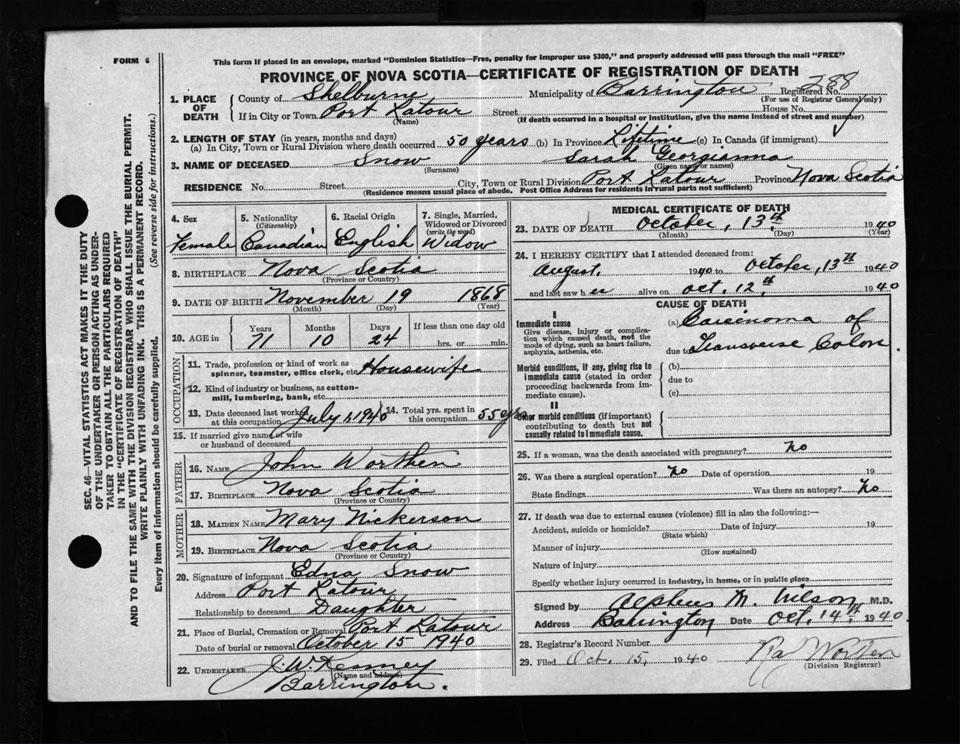 FORM 6
This form if placed in an envelope, marked "Dominion Statistics—Free, penalty for improper use $300," and properly addressed will pass through the mail "FREE"
PROVINCE OF NOVA SCOTIA—CERTIFICATE OF REGISTRATION OF DEATH
288
1. PLACE OF DEATH County of Shelburne Municipality of Barrington Registered No.
(For use of Registrar General only)
If in City or Town Port Latour Street House No.
(Name) (If death occurred in a hospital or institution, give the name instead of street and number)
2. LENGTH OF STAY (in years, months and days)
(a) In City, Town or Rural Division where death occurred 50 years (b) In Province Lifetime (c) In Canada (if immigrant)
3. NAME OF DECEASED Snow Sarah Georgianna
(Surname) (Given name or names)
RESIDENCE No. Street City, Town or Rural Division Port Latour Province Nova Scotia
(Residence means usual place of abode. Post Office Address for residents in rural parts not sufficient)
4. Sex 5. Nationality (Citizenship) 6. Racial Origin 7. Single, Married, Widowed or Divorced (write the word)
Female Canadian English Widow
8. BIRTHPLACE Nova Scotia
(Province or Country)
9. DATE OF BIRTH November 19 1868
(Month) (Day) (Year)
10. AGE in Years Months Days If less than one day old
71 10 24 hrs. or min.
OCCUPATION
11. Trade, profession or kind of work as spinner, teamster, office clerk, etc. Housewife
12. Kind of industry or business, as cotton-mill, lumbering, bank, etc.
13. Date deceased last worked at this occupation July 1, 1940 14. Total yrs. spent in this occupation 55 yrs
15. If married give name of wife or husband of deceased
FATHER
16. NAME John Worthen
17. BIRTHPLACE Nova Scotia
(Province or Country)
MOTHER
18. MAIDEN NAME Mary Nickerson
19. BIRTHPLACE Nova Scotia
(Province or Country)
20. Signature of informant Edna Snow
Address Port Latour
Relationship to deceased Daughter
21. Place of Burial, Cremation or Removal Port Latour
Date of burial or removal October 15 1940
22. UNDERTAKER J. W. Kenney
(Name and address)
Barrington.
MEDICAL CERTIFICATE OF DEATH
23. DATE OF DEATH October, 13th 1940
(Month) (Day) (Year)
24. I HEREBY CERTIFY that I attended deceased from:
August, 1940 to October, 13th 1940
and last saw her alive on Oct. 12th 1940
CAUSE OF DEATH
I
Immediate cause
Give disease, injury or complication which caused death, not the mode of dying, such as heart failure, asphyxia, asthenia, etc.
(a) Carcinoma of
due to Transverse Colon.
Morbid conditions, if any, giving rise to immediate cause (stated in order proceeding backwards from immediate cause).
(b)
due to
(c)
II
Other morbid conditions (if important) contributing to death but not causally related to immediate cause.
25. If a woman, was the death associated with pregnancy? No
26. Was there a surgical operation? No Date of operation 19
State findings Was there an autopsy? No
27. If death was due to external causes (violence) fill in also the following:—
Accident, suicide or homicide? Date of injury 19
(State which)
Manner of injury
(How sustained)
Nature of injury
Specify whether injury occurred in industry, in home, or in public place
Signed by Alpheus M. Wilson M.D.
Address Barrington Date Oct. 14th 1940
28. Registrar's Record Number
29. Filed Oct. 15, 1940
(Division Registrar)
SEC. 46—VITAL STATISTICS ACT MAKES IT THE DUTY
OF THE UNDERTAKER OR PERSON ACTING AS UNDER-
TAKER TO OBTAIN ALL THE PARTICULARS REQUIRED
IN THE "CERTIFICATE OF REGISTRATION OF DEATH"
AND TO FILE THE SAME WITH THE DIVISION REGISTRAR WHO SHALL ISSUE THE BURIAL PERMIT.
WRITE PLAINLY WITH UNFADING INK. THIS IS A PERMANENT RECORD.
Every item of information should be carefully supplied. (See reverse side for instructions.)